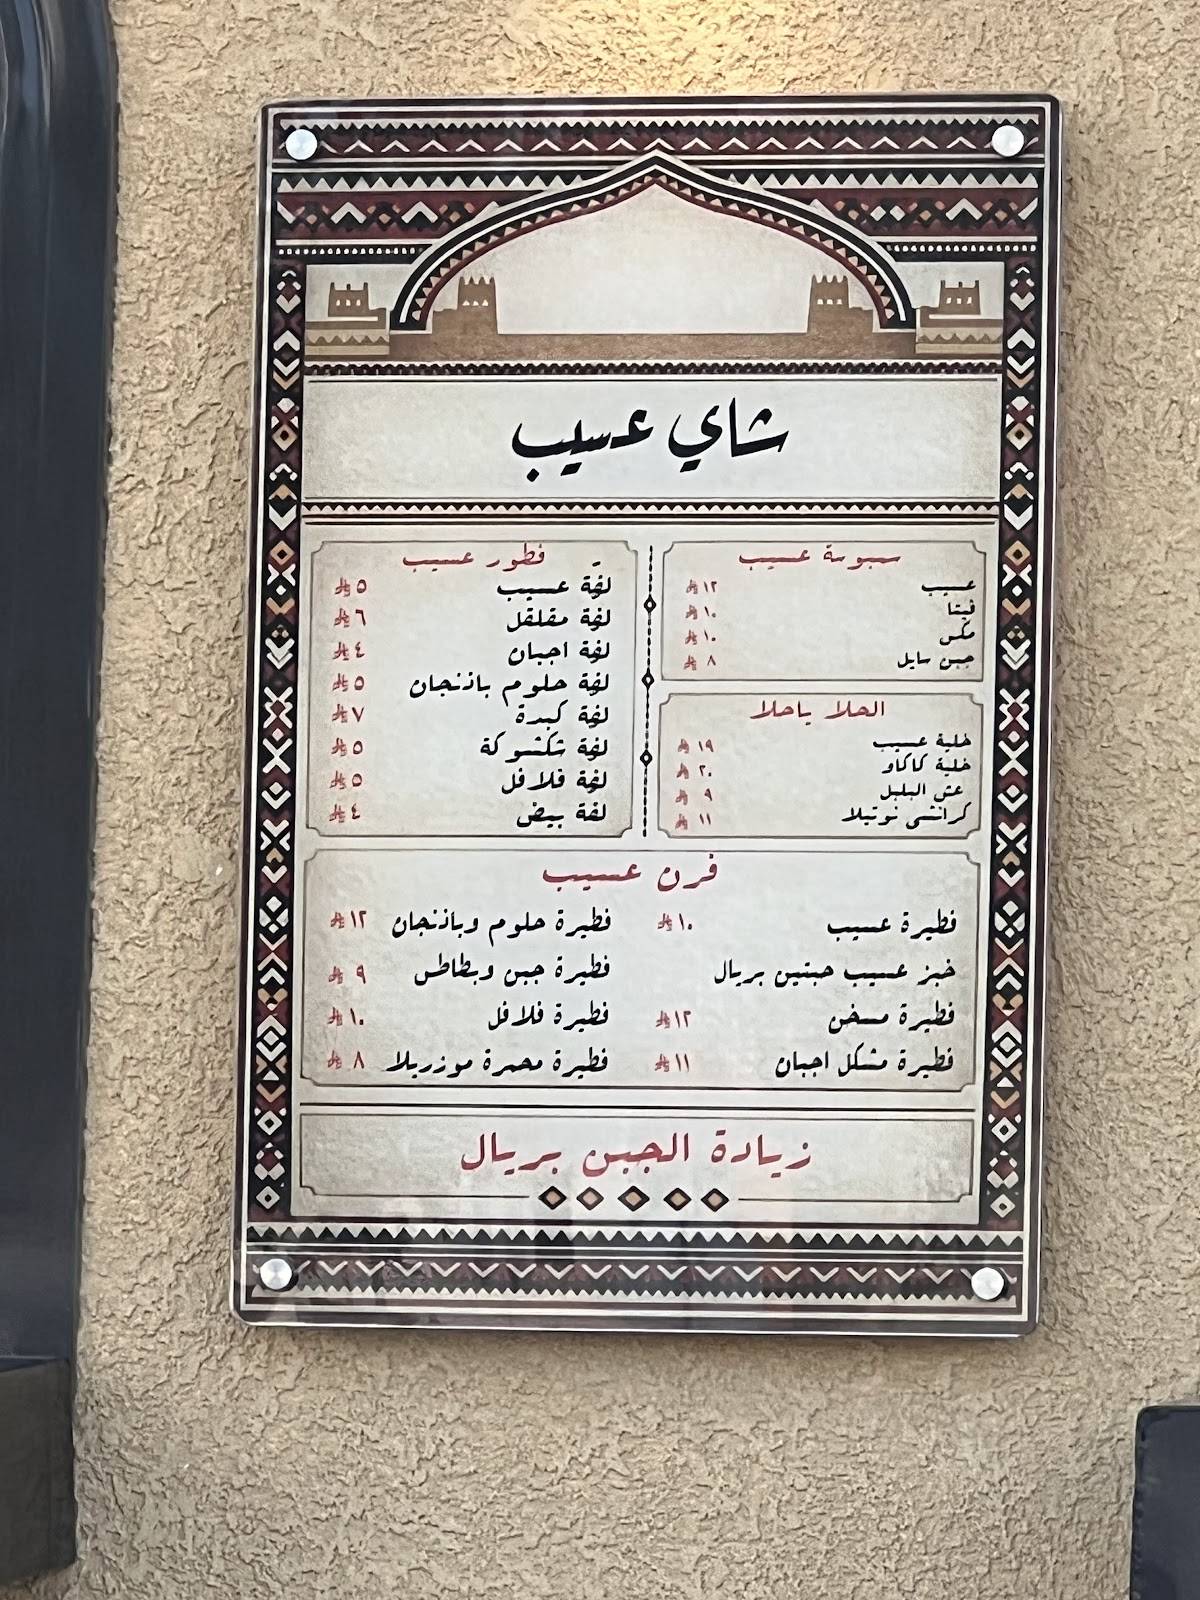 شاي عسيب
سبوسة عسيب
عسيب ١٢
ڤيتا ١٠
مكس ١٠
جبن سايل ٨
الحلا ياحلا
خلية عسيب ١٩
خلية كاكاو ٢٠
عش البلبل ٩
كرانشي نوتيلا ١١
فطور عسيب
لفة عسيب ٥
لفة مقلقل ٦
لفة اجبان ٤
لفة حلوم باذنجان ٥
لفة كبدة ٧
لفة شكشوكة ٥
لفة فلافل ٥
لفة بيض ٤
فرن عسيب
فطيرة عسيب ١٠
خبز عسيب حبتين بريال
فطيرة مسخن ١٢
فطيرة مشكل اجبان ١١
فطيرة حلوم وباذنجان ١٢
فطيرة جبن وبطاطس ٩
فطيرة فلافل ١٠
فطيرة محمرة موزريلا ٨
زيادة الجبن بريال